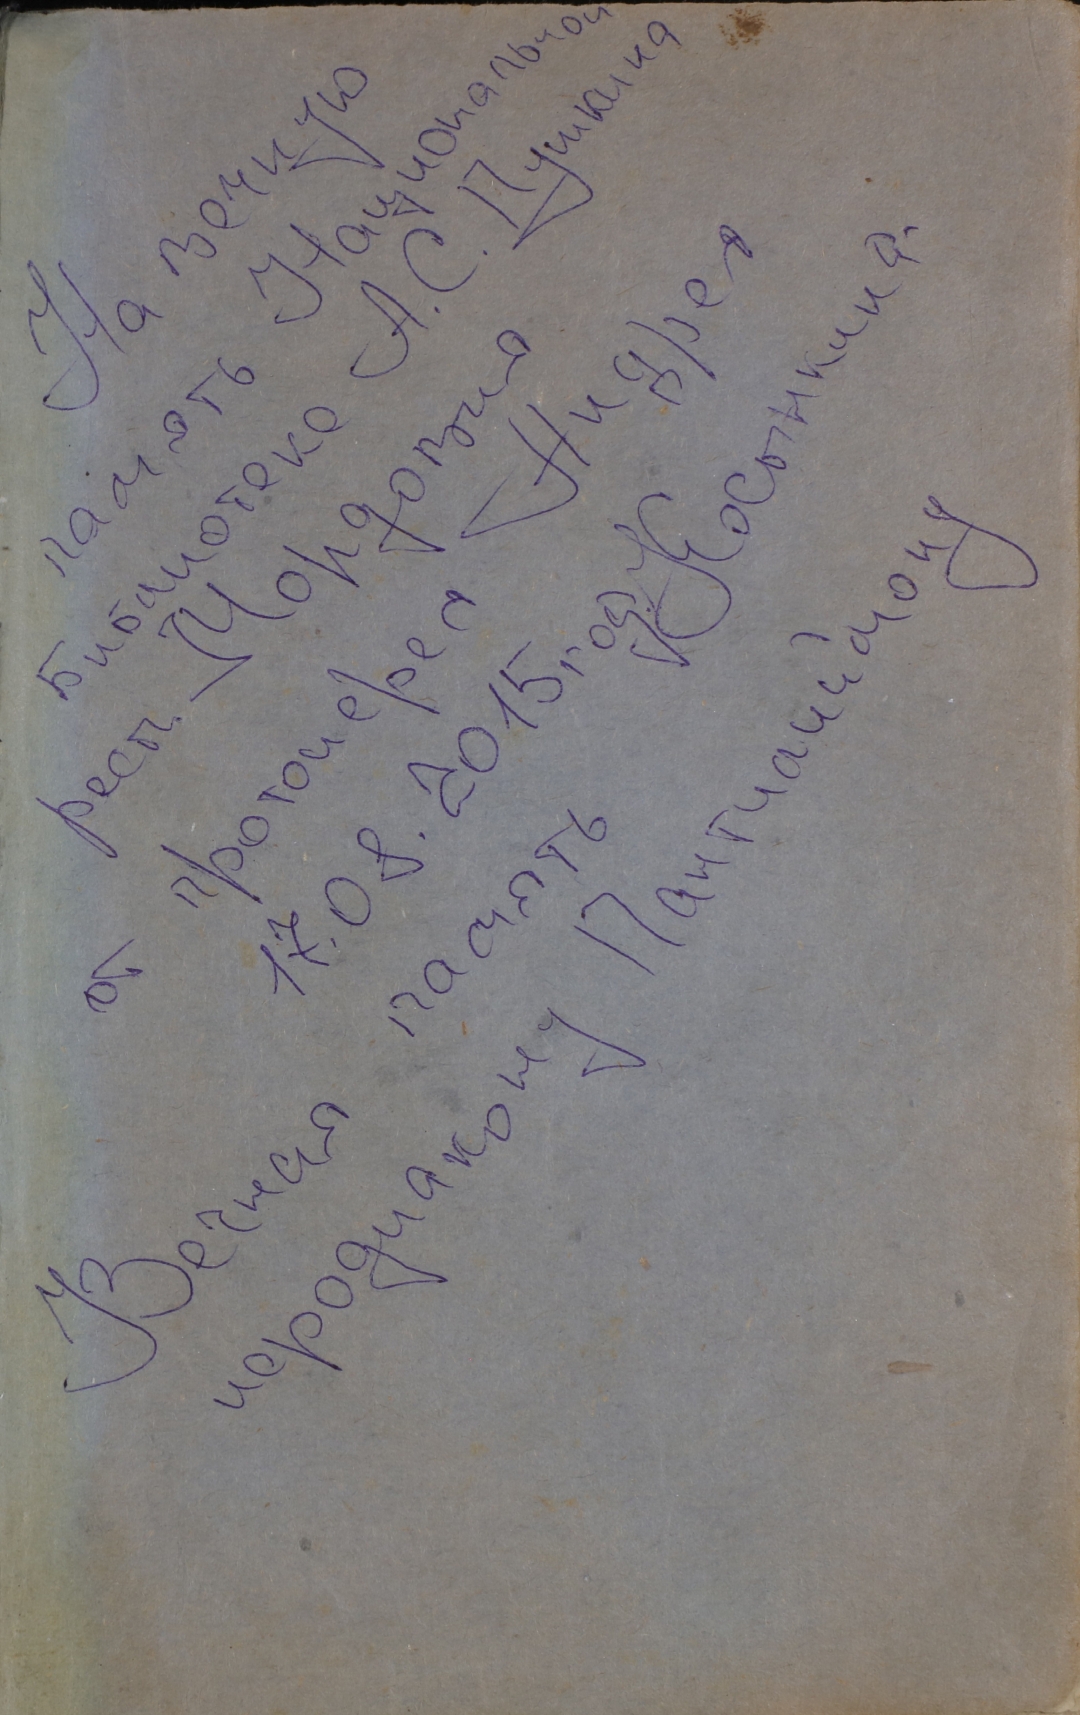 На вечную
память Национальной
библиотеке А.С. Пушкина
респ. Мордовия
от протоиерея Андрея
17.08.2015 году
Вечная память
иеродиакону Пантилаймону